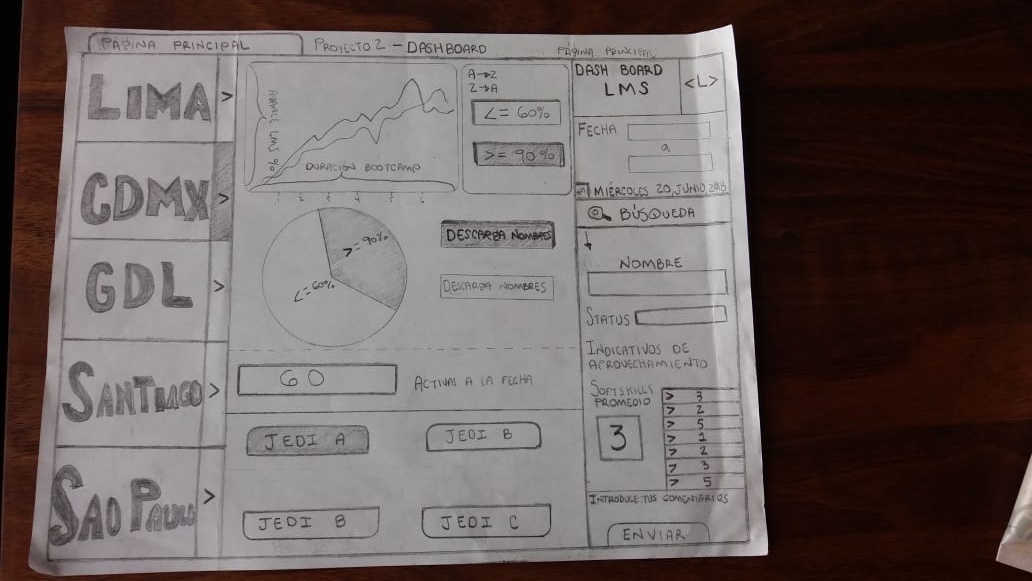 PÁGINA PRINCIPAL
PROYECTO 2 - DASHBOARD
PÁGINA PRINCIPAL
LIMA >
CDMX >
GDL >
SANTIAGO >
SAO PAULO >
LMS 90
DURACIÓN BOOTCAMP
1 2 3 4 5 6
A→Z
Z→A
<= 60%
>= 90%
>= 90%
<= 60%
DESCARGA NOMBRES
DESCARGA NOMBRES
60
ACTIVAS A LA FECHA
JEDI A
JEDI B
JEDI B
JEDI C
DASH BOARD
LMS
<L>
FECHA
a
MIÉRCOLES 20, JUNIO, 2018
BÚSQUEDA
NOMBRE
STATUS
INDICATIVOS DE
APROVECHAMIENTO
SOFTSKILLS
PROMEDIO
3
> 3
> 2
> 5
> 1
> 2
> 3
> 5
INTRODUCE TUS COMENTARIOS
ENVIAR